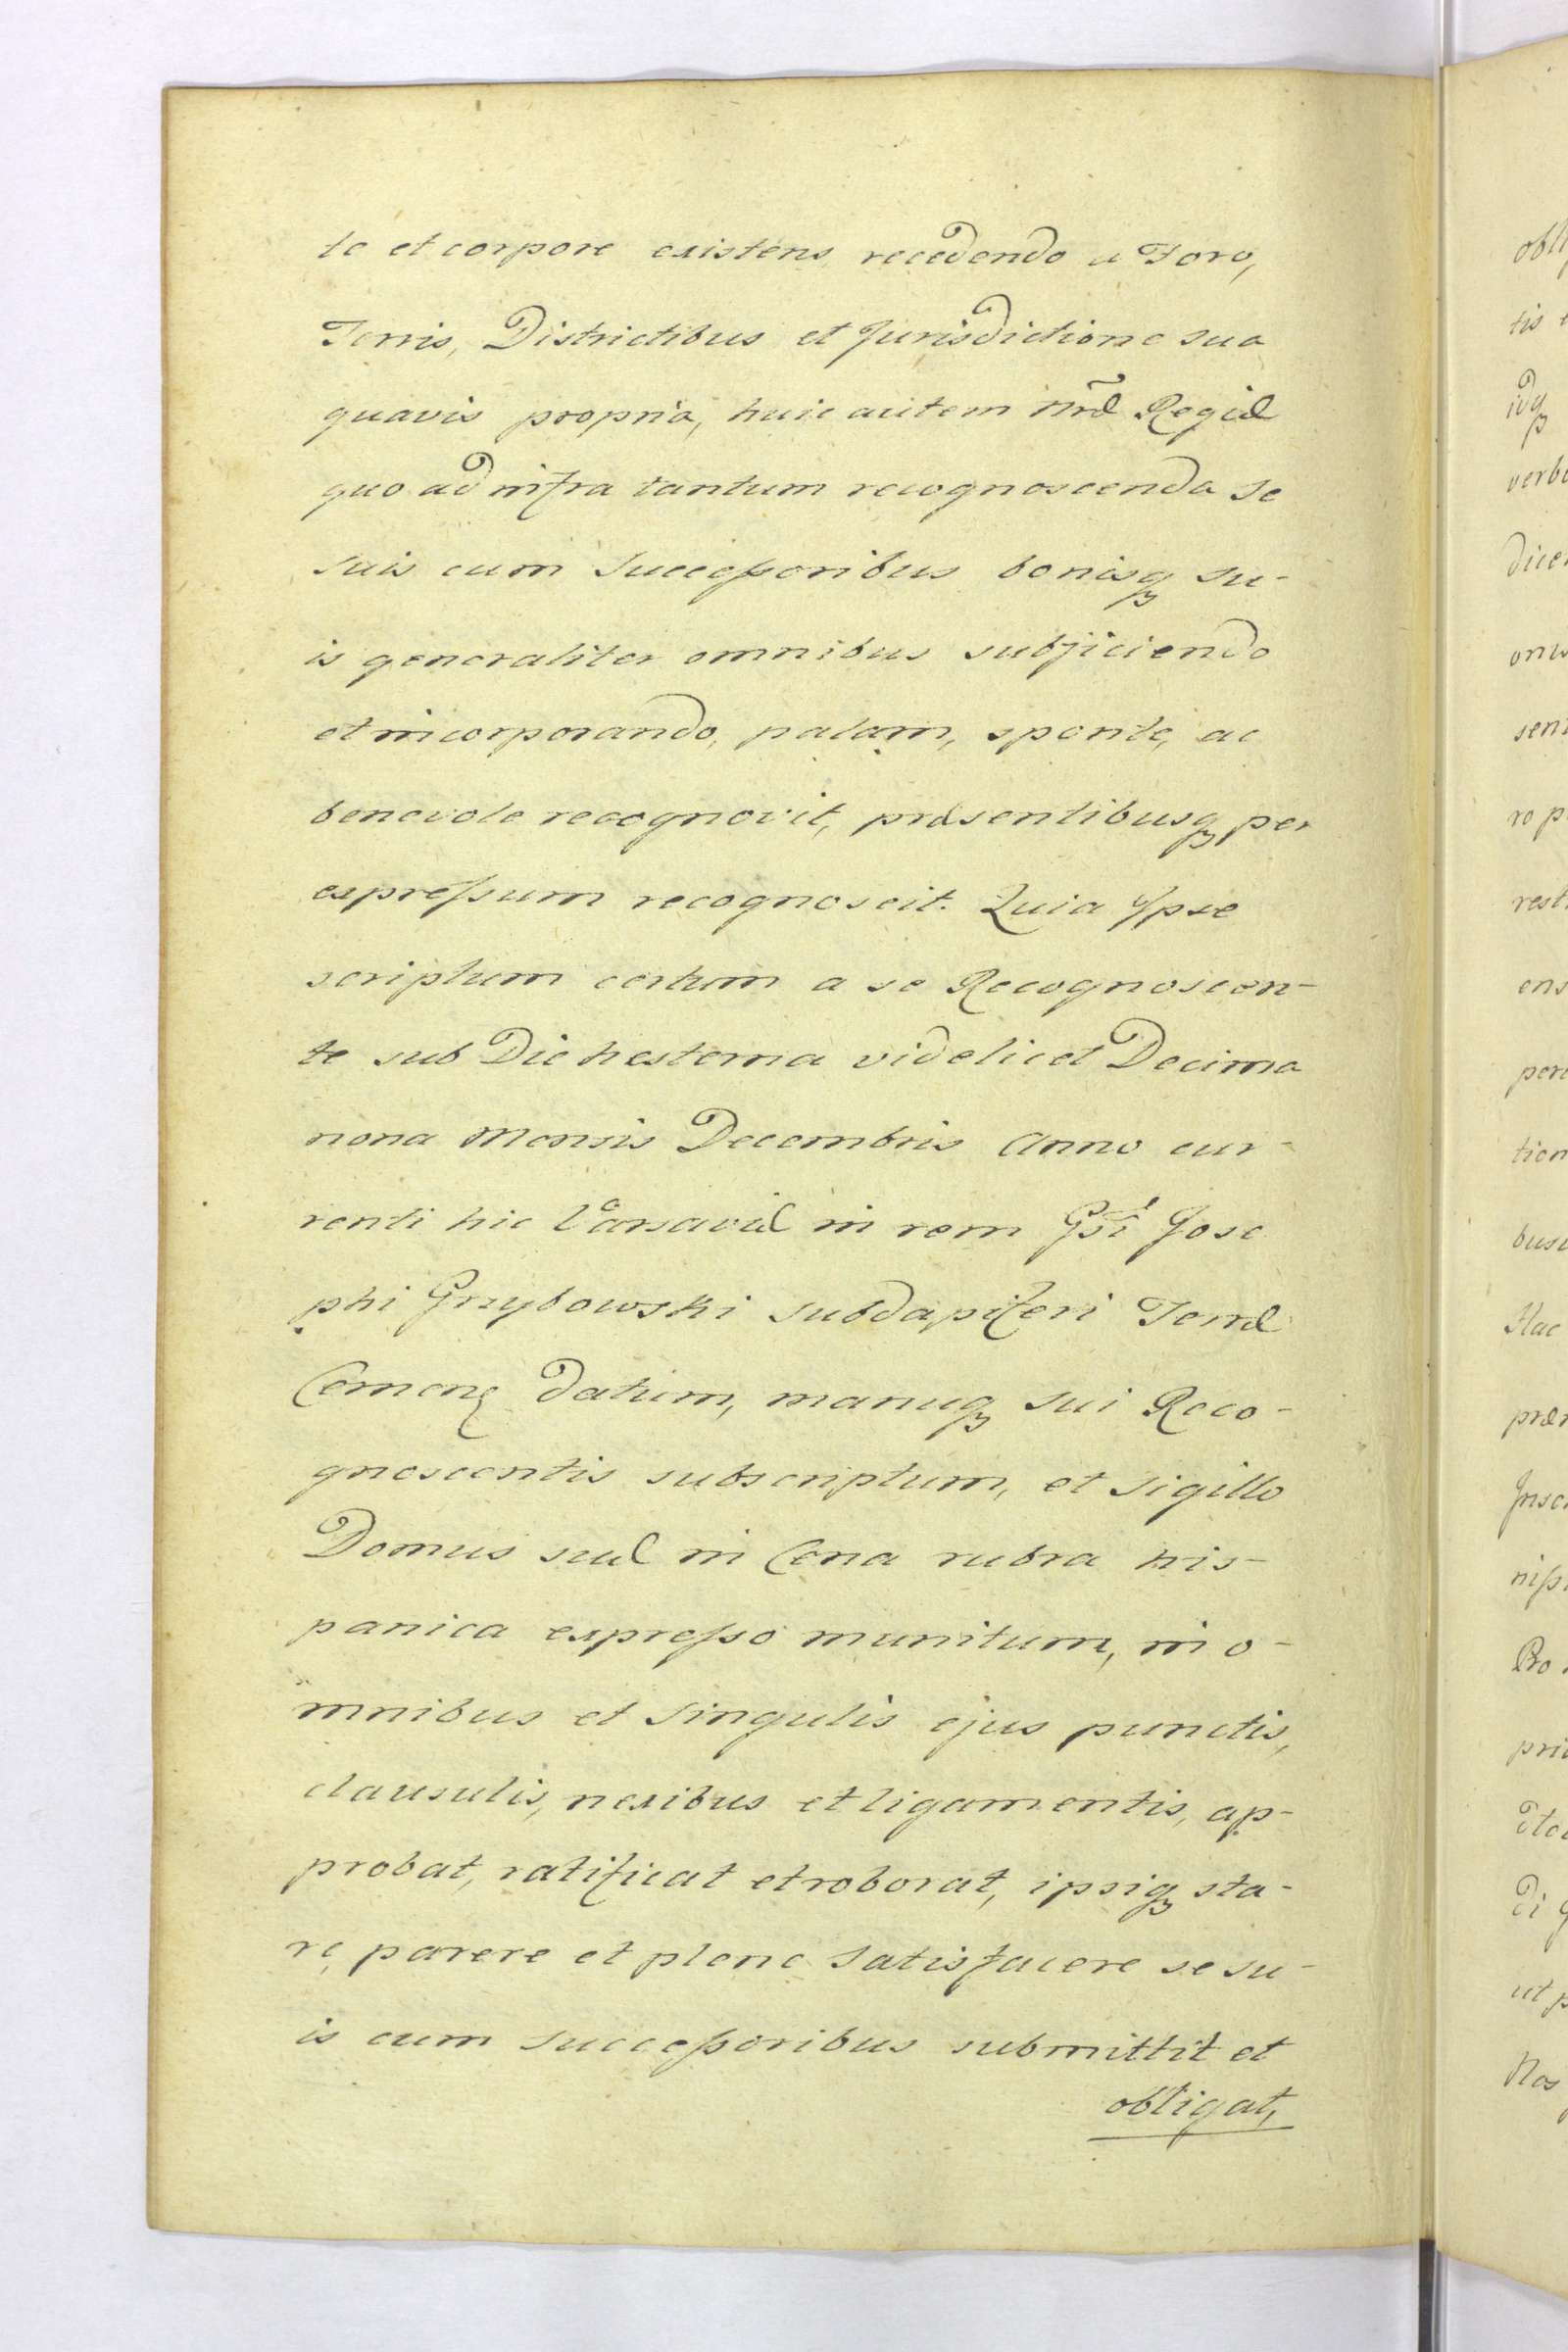 te et corpore existens, recedendo a Foro,
Terris, Districtibus et Jurisdictione sua
quavis propria, huic autem Nr̃æ Regiæ
quo ad infra tantum recognoscenda se
suis cum Successoribus bonisq su-
is generaliter omnibus subjiciendo
et incorporando, palam, sponte, ac
benevole recognovit, præsentibusq per
expressum recognoscit. Quia Ipse
scriptum certum a se Recognoscen-
te sub Die hesterna videlicet Decima
nona Mensis Decembris Anno cur-
renti hic Varsaviæ in rem Gsi Jose
phi Grzybowski Subdapiferi Terræ
Cernen datum, manuq sui Reco-
gnoscentis subscriptum, et Sigillo
Domus suæ in Cera rubra his-
panica expresso munitum, in o-
mnibus et Singulis ejus punctis,
clausulis, nexibus et ligamentis, ap-
probat, ratificat et roborat, ipsiq sta-
re, parere et plene Satisfacere se su-
is cum Successoribus submittit et
obligat,
obli
tis
idq
verb
dice
sen
ro p
rest
ens
per
tion
busu
Hac
præ
Insc
niss
Pro
pri
di
ut p
Nos